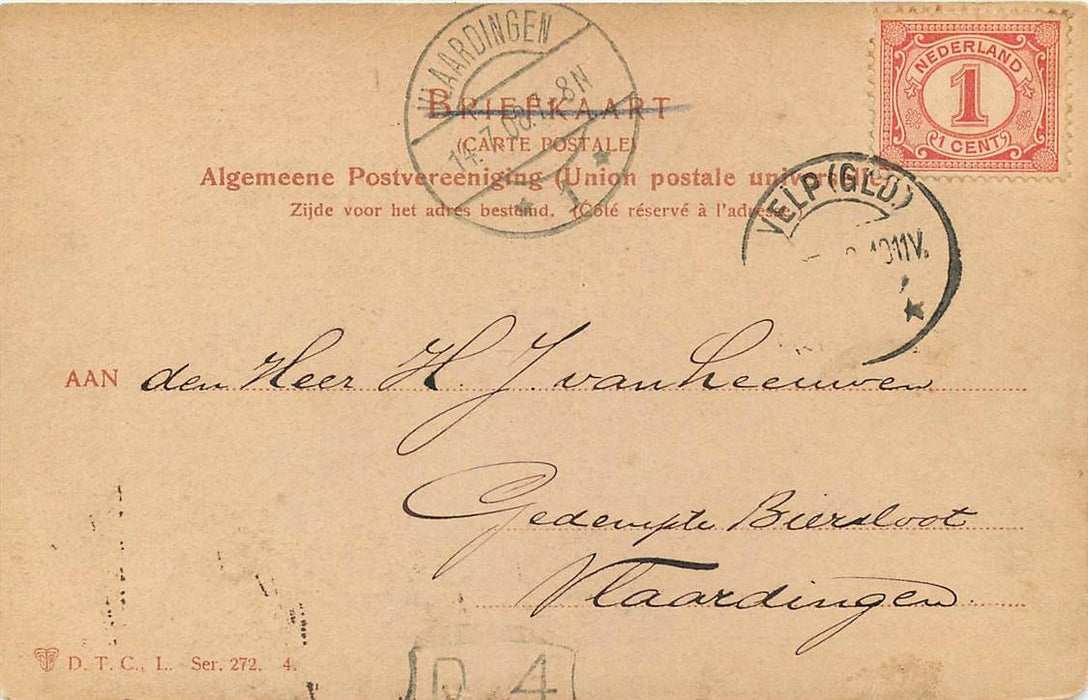 VLAARDINGEN
14.7.08.7-8N
1
NEDERLAND
1
1 CENT
BRIEFKAART
(CARTE POSTALE)
Algemeene Postvereeniging (Union postale universelle)
Zijde voor het adres bestemd. (Côté réservé à l'adresse.)
VELP (GLD.)
11V.
AAN den Heer H. J. van Leeuwen
Gedempte Biersloot
Vlaardingen.
D. T. C., L. Ser. 272. 4.
D 4